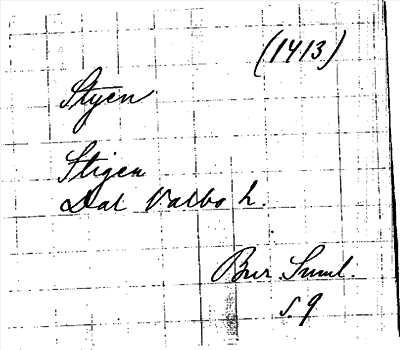 (1413)
Styen
Stigen
Dal Valbo h.
Bur. Suml.
s. 9